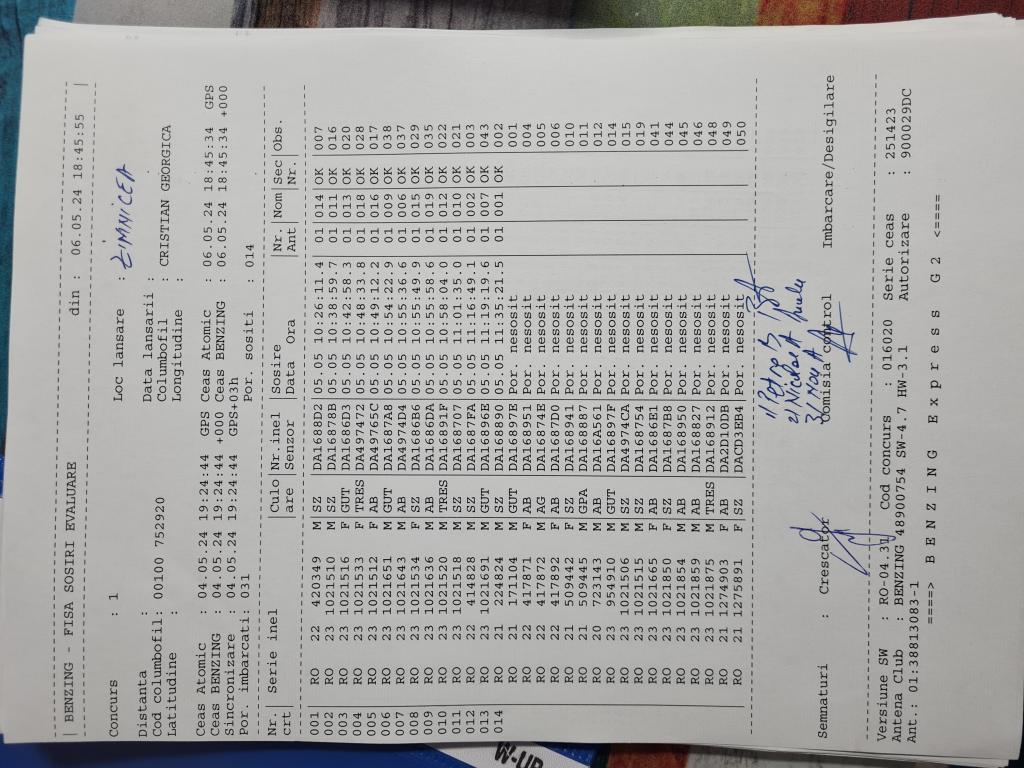 | BENZING - FISA SOSIRI EVALUARE din : 06.05.24 18:45:55 |
Concurs : 1 Loc lansare : ZIMNICEA
Distanta : Data lansarii :
Cod columbofil: 00100 752920 Columbofil : CRISTIAN GEORGICA
Latitudine : Longitudine :
Ceas Atomic : 04.05.24 19:24:44 GPS Ceas Atomic : 06.05.24 18:45:34 GPS
Ceas BENZING : 04.05.24 19:24:44 +000 Ceas BENZING : 06.05.24 18:45:34 +000
Sincronizare : 04.05.24 19:24:44 GPS+03h
Por. imbarcati: 031 Por. sositi : 014
Nr. | Serie inel |Culo |Nr inel |Sosire |Nr. |Nom |Sec |Obs.
crt |are |Senzor |Data Ora |Ant | |Nr. |
001 RO 22 420349 M SZ DA1688D2 05.05 10:26:11.4 01 014 OK 007
002 RO 23 1021510 M SZ DA16878B 05.05 10:38:59.7 01 011 OK 016
003 RO 23 1021516 F GUT DA1686D3 05.05 10:42:58.3 01 013 OK 020
004 RO 23 1021533 F TRES DA497472 05.05 10:48:33.8 01 018 OK 028
005 RO 23 1021512 F AB DA49765C 05.05 10:49:12.2 01 016 OK 017
006 RO 23 1021651 M GUT DA1687A8 05.05 10:54:22.9 01 009 OK 038
007 RO 23 1021643 M AB DA4974D4 05.05 10:55:36.6 01 006 OK 037
008 RO 23 1021534 F SZ DA1686B6 05.05 10:55:49.9 01 015 OK 029
009 RO 23 1021636 M AB DA1686DA 05.05 10:55:58.6 01 019 OK 035
010 RO 23 1021520 M TRES DA16891F 05.05 10:58:04.0 01 012 OK 022
011 RO 23 1021518 M SZ DA168707 05.05 11:01:35.0 01 010 OK 021
012 RO 22 414828 M SZ DA1687FA 05.05 11:16:49.1 01 002 OK 003
013 RO 23 1021691 M GUT DA16896E 05.05 11:19:19.6 01 007 OK 043
014 RO 21 224824 M SZ DA168890 05.05 11:35:21.5 01 001 OK 002
RO 21 171104 M GUT DA16897E Por. nesosit 001
RO 22 417871 F AB DA168951 Por. nesosit 004
RO 22 417872 M AG DA16874E Por. nesosit 005
RO 22 417892 F AB DA1687D0 Por. nesosit 006
RO 21 509442 F SZ DA168941 Por. nesosit 010
RO 21 509445 M GPA DA168887 Por. nesosit 011
RO 20 723143 M AB DA12A561 Por. nesosit 012
RO 23 954910 M GUT DA16897F Por. nesosit 014
RO 23 1021506 M SZ DA4974CA Por. nesosit 015
RO 23 1021515 M SZ DA168754 Por. nesosit 019
RO 23 1021665 F AB DA1686B1 Por. nesosit 041
RO 23 1021850 F SZ DA1687B8 Por. nesosit 044
RO 23 1021854 M AB DA168950 Por. nesosit 045
RO 23 1021859 M AB DA168827 Por. nesosit 046
RO 23 1021875 M TRES DA168912 Por. nesosit 048
RO 21 1274903 F AB DA2D10DB Por. nesosit 049
RO 21 1275891 F SZ DACD3EB4 Por. nesosit 050
1)
2) Nicolae A
3)
Semnaturi : Crescator Comisia control Imbarcare/Desigilare
Versiune SW : RO-04.31 Cod concurs : 016020 Serie ceas : 251423
Antena Club : BENZING 48900754 SW-4.7 HW-3.1 Autorizare : 900029DC
Ant.: 01:38813083-1
====> B E N Z I N G E x p r e s s G 2 <====
W-UP